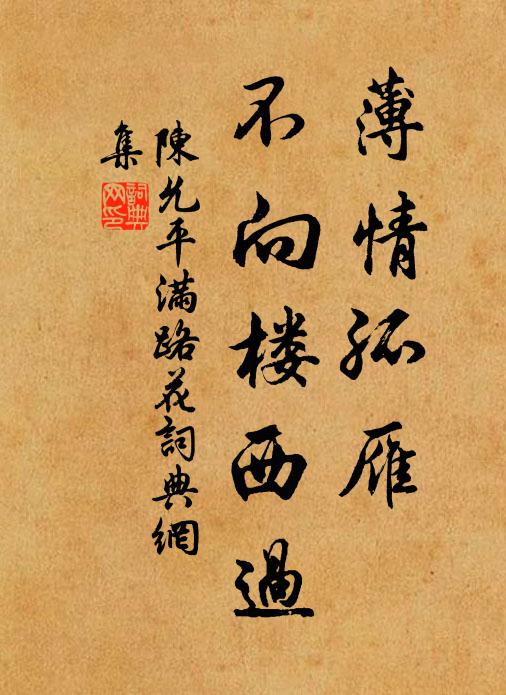 薄情孤雁
不向楼西過
陳允平滿路花詞典網
集
詞典网印